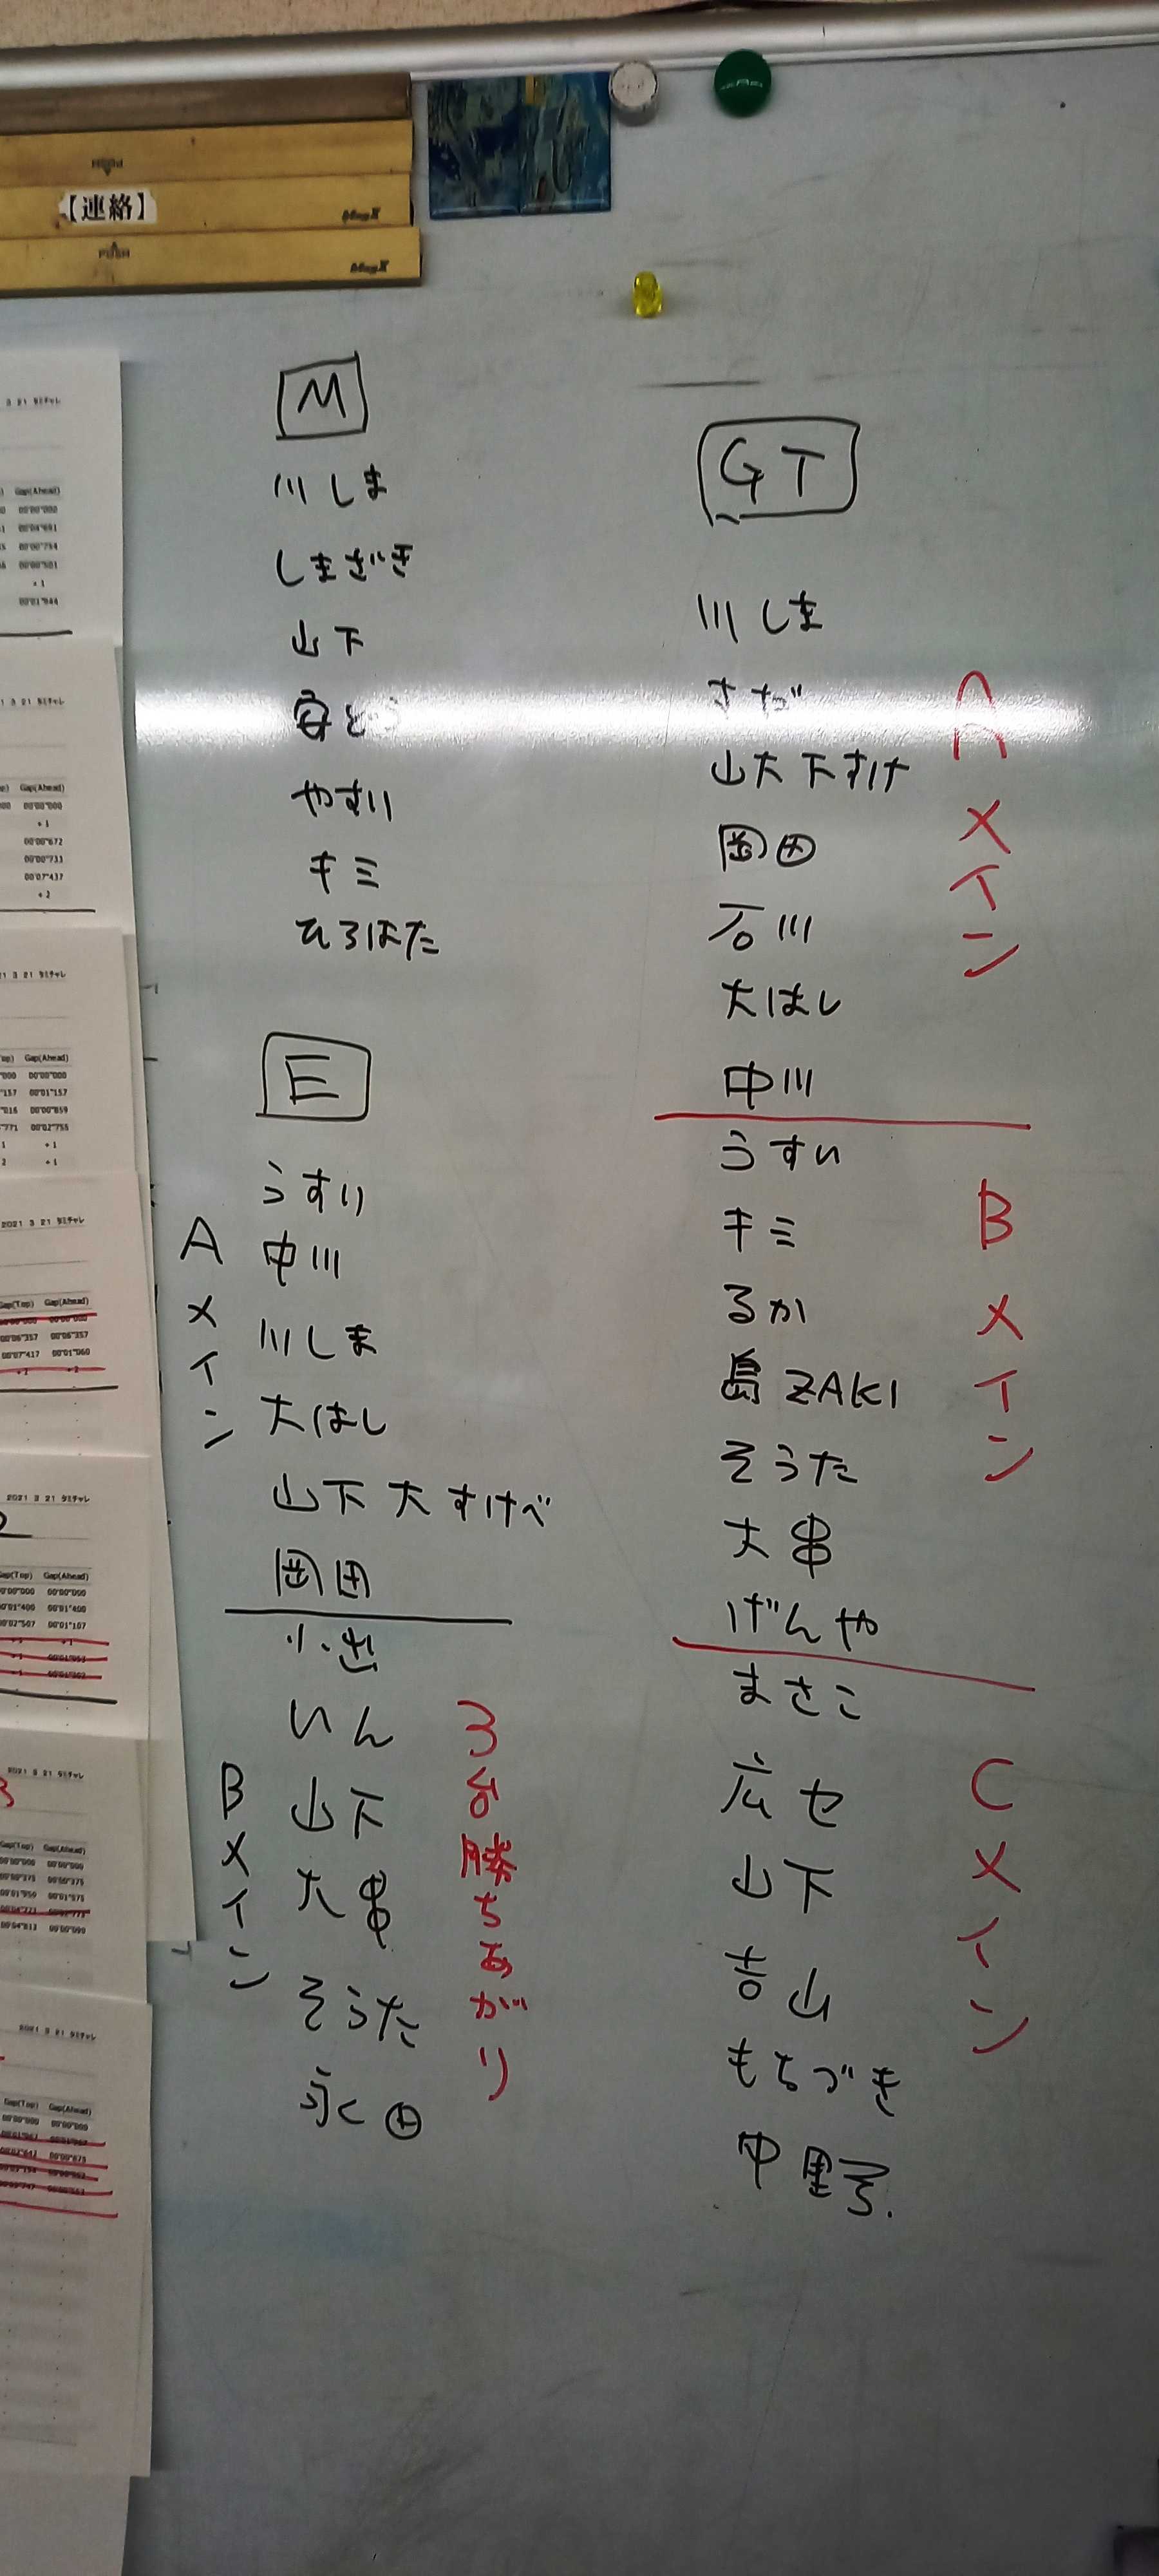 PUSH
【連絡】
MagX
PUSH
MagX
M
川しま
しまざき
山下
安と
やすい
キミ
ひろはた
E
Aメイン
うすい
中川
川しま
大はし
山下大すけべ
岡田
Bメイン
小出
いん
山下
大串
そうた
永田
3台勝ちあがり
GT
Aメイン
川しま
さだ
山大下すけ
岡田
石川
大はし
中川
Bメイン
うすい
キミ
るか
島ZAKI
そうた
大串
げんや
Cメイン
まさこ
広セ
山下
吉山
もちづき
中野
3 21 タミチャレ
Gap(Ahead)
00'00"000
+1
00'01"944
3 21 タミチャレ
Gap(Ahead)
00'00"000
+1
00'00"672
00'00"733
00'07"437
+2
21 3 21 タミチャレ
Gap(Ahead)
00'00"000
00'01"157
00'00"859
+1
+1
2021 3 21 タミチャレ
Gap(Top) Gap(Ahead)
00'06"357 00'06"357
00'07"417 00'01"060
2021 3 21 タミチャレ
Gap(Top) Gap(Ahead)
00'00"000 00'00"000
00'01"400 00'01"400
00'02"507 00'01"107
2021 3 21 タミチャレ
Gap(Top) Gap(Ahead)
00'00"000 00'00"000
00'00"375 00'00"375
2021 3 21 タミチャレ
Gap(Top) Gap(Ahead)
00'00"000 00'00"000